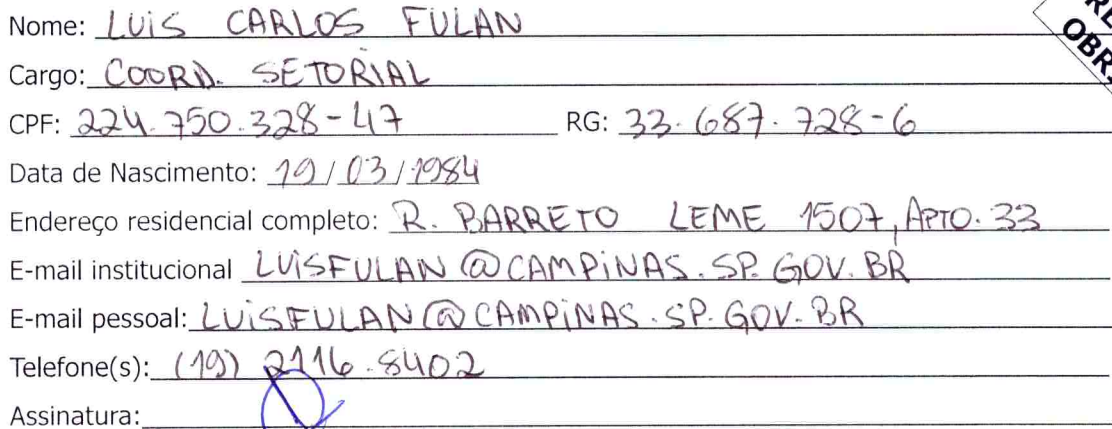 Nome: LUIS CARLOS FULAN
Cargo: COORD. SETORIAL
CPF: 224.750.328-47 RG: 33.687.728-6
Data de Nascimento: 19/03/1984
Endereço residencial completo: R. BARRETO LEME 1507, APTO. 33
E-mail institucional LUISFULAN@CAMPINAS.SP.GOV.BR
E-mail pessoal: LUISFULAN@CAMPINAS.SP.GOV.BR
Telefone(s): (19) 2116.8402
Assinatura: